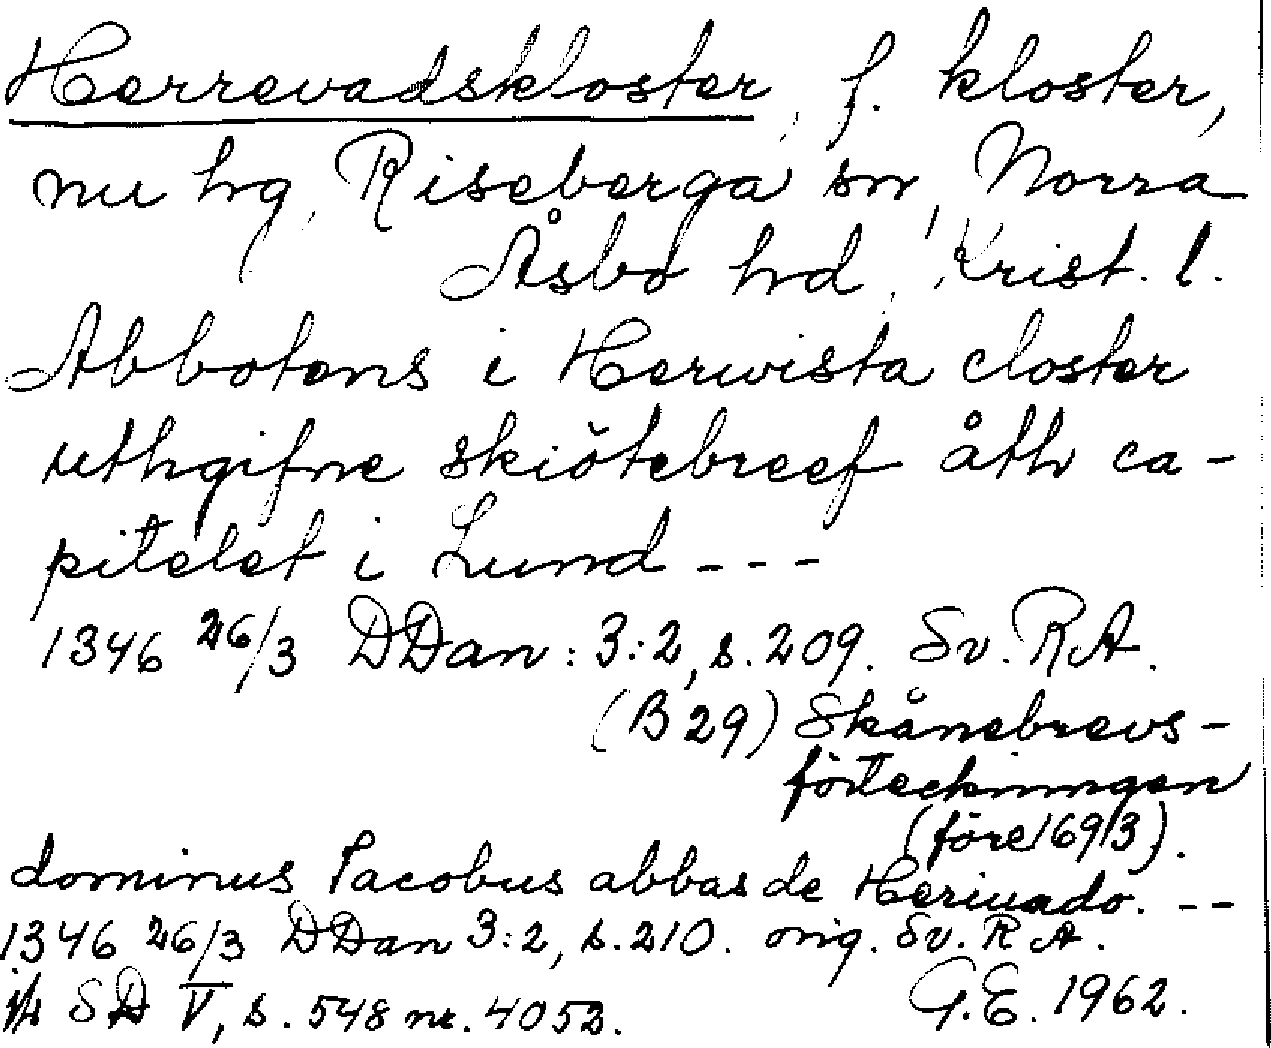 Herrevadskloster, f. kloster,
nu hg, Riseberga sn, Norra
Åsbo hd, Krist. l.
Abbotens i Herwista closter
uthgifne skiötebreef åth ca-
pitelet i Lund ---
1346 26/3 DDan: 3:2, s. 209. Sv. RA.
(B 29) Skånebrevs-
förteckningen
(före 1693).
dominus Jacobus abbas de Heriuado. --
1346 26/3 DDan 3:2, s. 210. orig. Sv. RA.
SD V, s. 548 nr. 4053.
G.E. 1962.